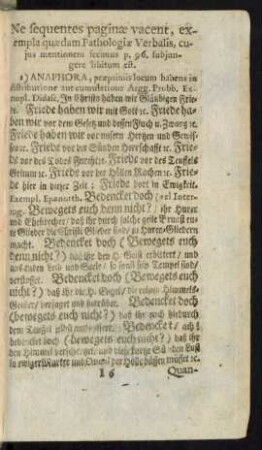 Ne sequentes paginæ vacent, ex-
empla quædam Pathologiæ Verbalis, cu-
jus mentionem fecimus p. 96. subjun-
gere libitum est.
1) ANAPHORA, præprimis locum habens in
distributione aut cumulatione Argg. Probb. Ex-
empl. Didasc. In Christo haben wir Gläubigen Frie-
den. Friede haben wir mit Gott ꝛc. Friede ha-
ben wir vor dem Gesetz und dessen Fluch u. Zwang ꝛc.
Friede haben wir vor unsern Hertzen und Gewis-
sen ꝛc. Friede vor der Sünden Herrschafft ꝛc. Frie-
de vor des Todes Furcht ꝛc. Friede vor des Teuffels
Grimm ꝛc. Friede vor der Höllen Rachen ꝛc. Frie-
de hier in dieser Zeit; Friede dort in Ewigkeit.
Exempl. Epanorth. Bedencket doch (vel Inter-
rog. Bewegets euch denn nicht? / ihr Hurer
und Ehebrecher / daß ihr durch solche geile Brunst eu-
re Glieder die Christi Glieder sind / zu Huren-Gliedern
macht. Bedencket doch (Bewegets euch
denn nicht?) daß ihr den H. Geist erbittert / und
Leib und Seele / so sonst sein Tempel sind /
verstösset. Bedencket doch (Bewegets euch
nicht?) daß ihr die H. Engel / die reinen Himmels-
Geister / verjaget und betrübet. Bedencket doch
(bewegets euch nicht?) daß ihr euch hiedurch
dem Teuffel
Bedencket / ach!
bedencket doch (bewegets euch nicht?) daß ihr
den Himmel verschertzet / und diese kurtze Sünden Lust
in ewiger Marter und Quaal der Hölle büssen müsset ꝛc.
I 6
Quan-